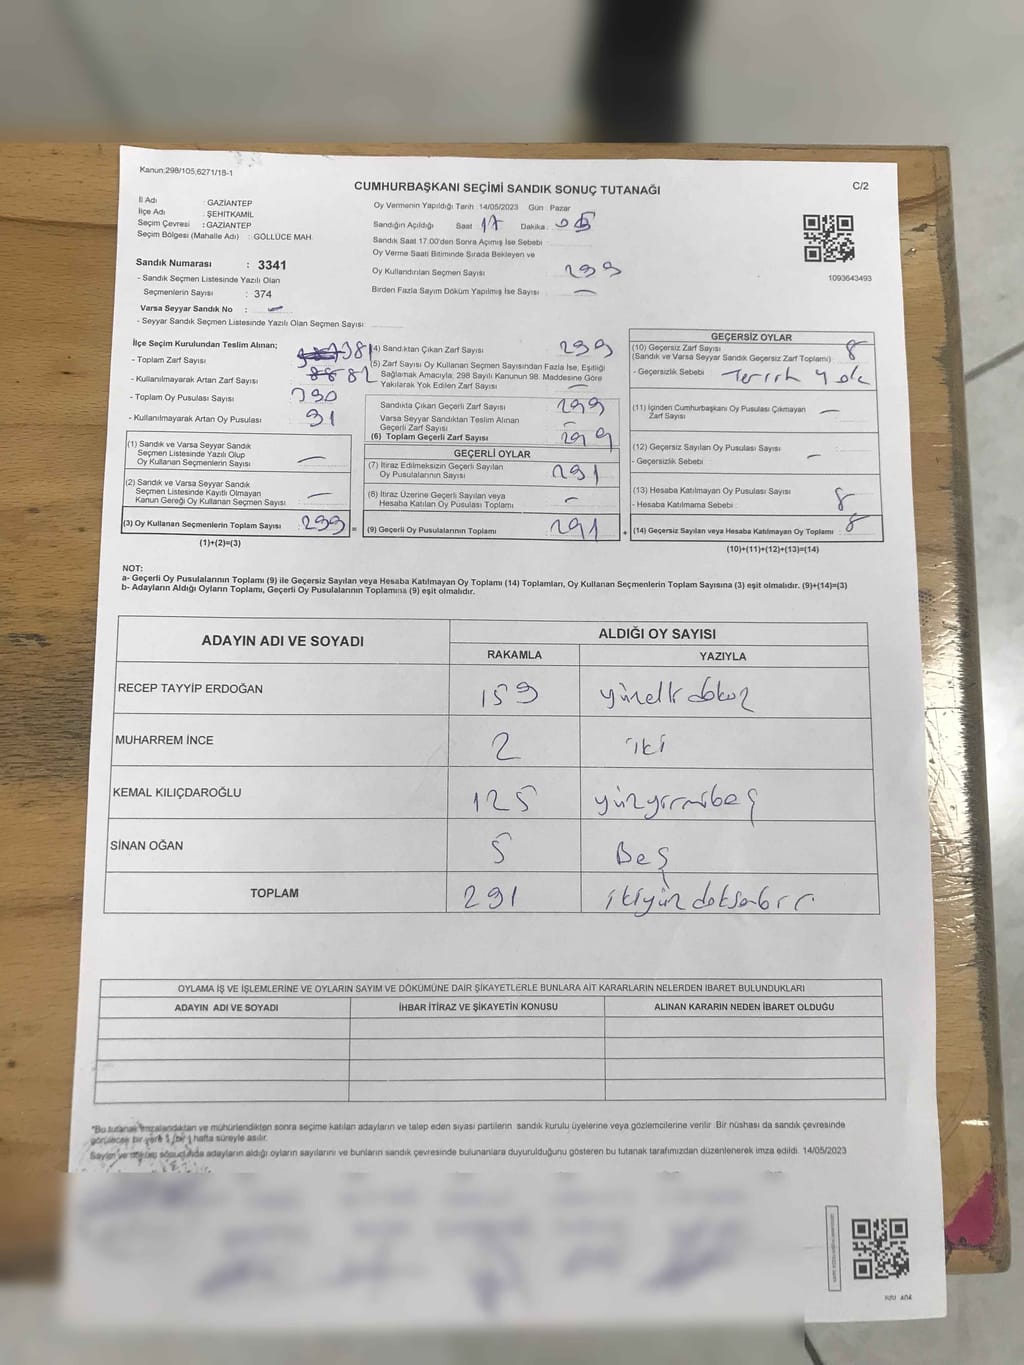 Kanun:298/105,6271/18-1
CUMHURBAŞKANI SEÇİMİ SANDIK SONUÇ TUTANAĞI
C/2
İl Adı : GAZİANTEP
İlçe Adı : ŞEHİTKAMİL
Seçim Çevresi : GAZİANTEP
Seçim Bölgesi (Mahalle Adı) : GÖLLÜCE MAH.
Sandık Numarası : 3341
- Sandık Seçmen Listesinde Yazılı Olan
Seçmenlerin Sayısı : 374
Varsa Seyyar Sandık No : –
- Seyyar Sandık Seçmen Listesinde Yazılı Olan Seçmen Sayısı
Oy Vermenin Yapıldığı Tarih : 14/05/2023 Gün : Pazar
Sandığın Açıldığı Saat 17 Dakika : 05
Sandık Saat 17.00'den Sonra Açımış İse Sebebi
Oy Verme Saati Bitiminde Sırada Bekleyen ve
Oy Kullandırılan Seçmen Sayısı 299
Birden Fazla Sayım Döküm Yapılmış İse Sayısı –
1093643493
İlçe Seçim Kurulundan Teslim Alınan;
- Toplam Zarf Sayısı 381
- Kullanılmayarak Artan Zarf Sayısı 82
- Toplam Oy Pusulası Sayısı 390
- Kullanılmayarak Artan Oy Pusulası 91
(1) Sandık ve Varsa Seyyar Sandık
Seçmen Listesinde Yazılı Olup
Oy Kullanan Seçmenlerin Sayısı –
(2) Sandık ve Varsa Seyyar Sandık
Seçmen Listesinde Kayıtlı Olmayan
Kanun Gereği Oy Kullanan Seçmen Sayısı –
(3) Oy Kullanan Seçmenlerin Toplam Sayısı : 299 =
(1)+(2)=(3)
(4) Sandıktan Çıkan Zarf Sayısı 299
(5) Zarf Sayısı Oy Kullanan Seçmen Sayısından Fazla İse, Eşitliği
Sağlamak Amacıyla, 298 Sayılı Kanunun 98. Maddesine Göre
Yakılarak Yok Edilen Zarf Sayısı –
Sandıkta Çıkan Geçerli Zarf Sayısı 299
Varsa Seyyar Sandıktan Teslim Alınan
Geçerli Zarf Sayısı –
(6) Toplam Geçerli Zarf Sayısı 299
GEÇERLİ OYLAR
(7) İtiraz Edilmeksizin Geçerli Sayılan
Oy Pusulalarının Sayısı 291
(8) İtiraz Üzerine Geçerli Sayılan veya
Hesaba Katılan Oy Pusulası Toplamı –
(9) Geçerli Oy Pusulalarının Toplamı 291 +
GEÇERSİZ OYLAR
(10) Geçersiz Zarf Sayısı 8
(Sandık ve Varsa Seyyar Sandık Geçersiz Zarf Toplamı)
- Geçersizlik Sebebi Tercih yok
(11) İçinden Cumhurbaşkanı Oy Pusulası Çıkmayan
Zarf Sayısı –
(12) Geçersiz Sayılan Oy Pusulası Sayısı
- Geçersizlik Sebebi –
(13) Hesaba Katılmayan Oy Pusulası Sayısı
- Hesaba Katılmama Sebebi : 8
(14) Geçersiz Sayılan veya Hesaba Katılmayan Oy Toplamı 8
(10)+(11)+(12)+(13)=(14)
NOT:
a- Geçerli Oy Pusulalarının Toplamı (9) ile Geçersiz Sayılan veya Hesaba Katılmayan Oy Toplamı (14) Toplamları, Oy Kullanan Seçmenlerin Toplam Sayısına (3) eşit olmalıdır. (9)+(14)=(3)
b- Adayların Aldığı Oyların Toplamı, Geçerli Oy Pusulalarının Toplamına (9) eşit olmalıdır.
ADAYIN ADI VE SOYADI ALDIĞI OY SAYISI
RAKAMLA YAZIYLA
RECEP TAYYİP ERDOĞAN 159 yüzelli dokuz
MUHARREM İNCE 2 iki
KEMAL KILIÇDAROĞLU 125 yüzyirmibeş
SİNAN OĞAN 5 Beş
TOPLAM 291 ikiyüz doksanbir
OYLAMA İŞ VE İŞLEMLERİNE VE OYLARIN SAYIM VE DÖKÜMÜNE DAİR ŞİKAYETLERLE BUNLARA AİT KARARLARIN NELERDEN İBARET BULUNDUKLARI
ADAYIN ADI VE SOYADI İHBAR İTİRAZ VE ŞİKAYETİN KONUSU ALINAN KARARIN NEDEN İBARET OLDUĞU
"Bu tutanak imzalandıktan ve mühürlendikten sonra seçime katılan adayların ve talep eden siyasi partilerin sandık kurulu üyelerine veya gözlemcilerine verilir. Bir nüshası da sandık çevresinde
görülecek bir yere 1 (bir) hafta süreyle asılır.
Sayım ve döküm sonucunda adayların aldığı oyların sayılarını ve bunların sandık çevresinde bulunanlara duyurulduğunu gösteren bu tutanak tarafımızdan düzenlenerek imza edildi. 14/05/2023